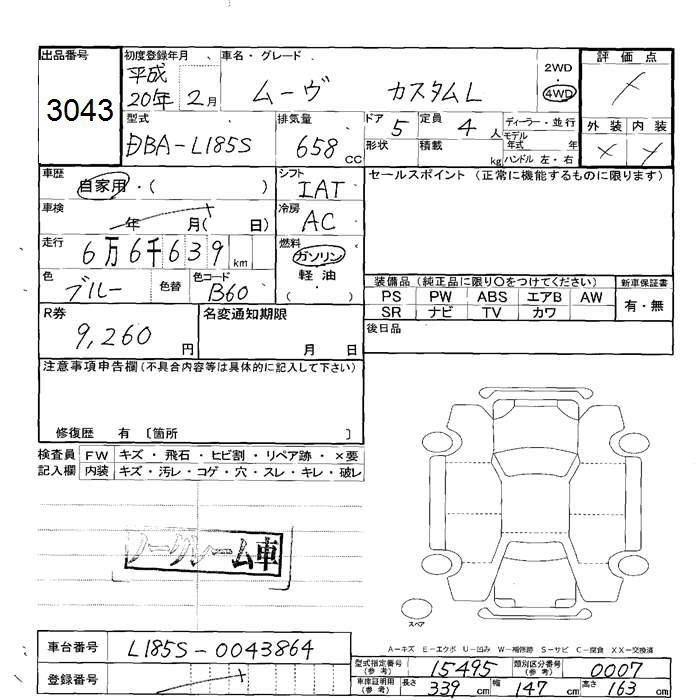 出品番号
3043
初度登録年月
平成
20年 2月
車名・グレード
ムーヴ カスタムL
2WD
・
4WD
評価点
外装 内装
型式
DBA-L185S
排気量
658 CC
ドア 5
形状
定員 4 人
積載 kg
ディーラー・並行
モデル
年式 年
ハンドル 左・右
車歴
自家用・( )
シフト
IAT
セールスポイント (正常に機能するものに限ります)
車検
年 月( 日)
冷房
AC
走行
6万6千639 km
燃料
ガソリン
軽油
( )
色
ブルー
色替
色コード
B60
装備品 (純正品に限り〇をつけてください)
PS PW ABS エアB AW
SR ナビ TV カワ
新車保証書
有・無
R券
9,260 円
名変通知期限
月 日
後日品
注意事項申告欄 (不具合内容等は具体的に記入して下さい)
修復歴 有 〔箇所 〕
検査員
記入欄
FW キズ・飛石・ヒビ割・リペア跡・×要
内装 キズ・汚レ・コゲ・穴・スレ・キレ・破レ
ノークレーム車
スペア
A－キズ E－エクボ U－凹み W－補修跡 S－サビ C－腐食 XX－交換済
車台番号
L185S-0043864
登録番号
型式指定番号
(参考)
15495
類別区分番号
(参考)
0007
車庫証明用
(参考)
長さ 339 cm 幅 147 cm 高さ 163 cm